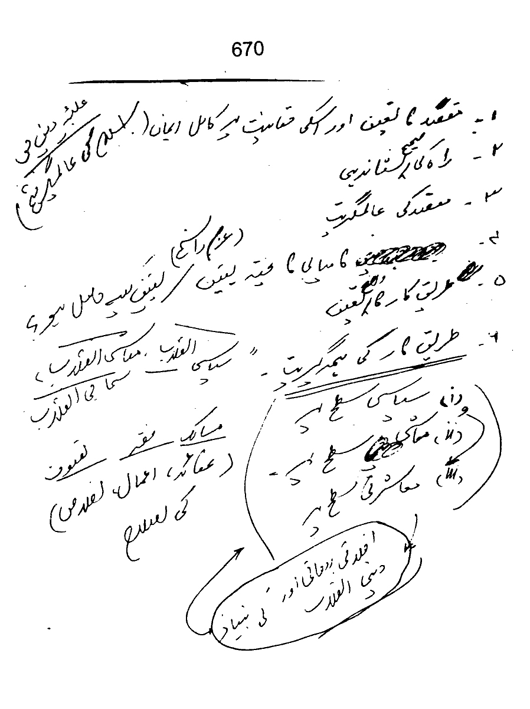 670
۱۔ مقصد کا تعین اور اسکی حقانیت پر کامل ایمان (اسلام کی عالمگیریت)
غلبۂ دین حق
۲۔ راہ کی صحیح نشاندہی
۳۔ مقصد کی عالمگیریت
۴۔ کامیابی کا پختہ یقین (عزم راسخ) یقین کیسے حاصل ہو؟
۵۔ طریق کار کا واضح تعین
۶۔ طریق کار کی ہمہ گیریت
سیاسی انقلاب، معاشی انقلاب،
سماجی انقلاب
(i) سیاسی سطح پر
(ii) معاشی سطح پر
(iii) معاشرتی سطح پر
مسالک فقہ تصوف
(عقائد، اعمال، اخلاص)
کی اصلاح
اخلاقی روحانی اور
دینی انقلاب کی بنیاد